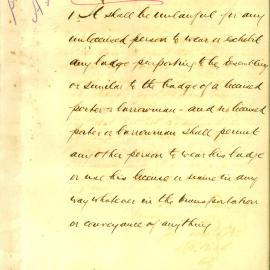 1 It shall be unlawful for any
unlicensed person to wear or exhibit
any badge purporting to be resembling
or similar to the badge of a licensed
porter or barrowman - and no licensed
porter or barrowman shall permit
any other person to wear his badge
or use his license or name in any
way whatever in the transportation
or conveyance of anything